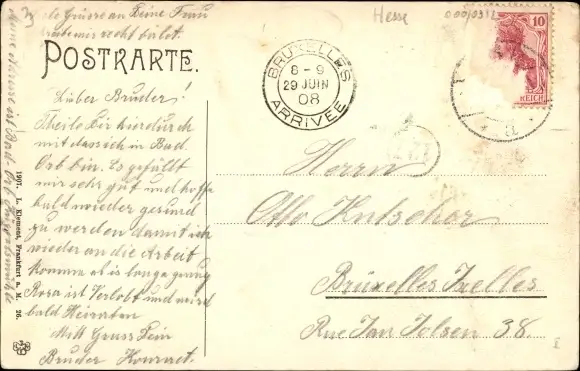 viele Grüsse an Deine Frau
schreibe mir recht bald.
POSTKARTE.
Hesse
10
REICH
BRUXELLES
8-9
29 JUIN
08
ARRIVÉE
Lieber Bruder!
Theile Dir hierdurch
mit dass ich in Bad
Orb bin. Es gefällt
mir sehr gut und hoffe
bald wieder gesund
zu werden damit ich
wieder an die Arbeit
komme es is lange genug
Rosa ist Verlobt und wird
bald Heiraten
Mitt Gruss Dein
Bruder Konrad.
Meine Adresse ist Bad Orb
1907. L. Klement, Frankfurt a. M. 26.
Herrn
Otto Kutscher
Brüxelles Ixelles
Rue Jan Jolsen 38.